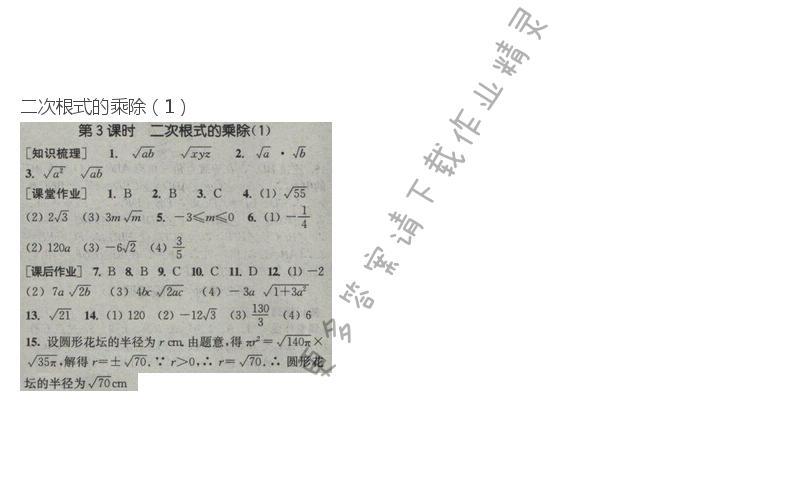 二次根式的乘除（1）
第3课时 二次根式的乘除(1)
[知识梳理] 1. √ab √xyz 2. √a · √b
3. √a² √ab
[课堂作业] 1. B 2. B 3. C 4. (1) √55
(2) 2√3 (3) 3m√m 5. －3≤m≤0 6. (1) －1/4
(2) 120a (3) －6√2 (4) 3/5
[课后作业] 7. B 8. B 9. C 10. C 11. D 12. (1) －2
(2) 7a√2b (3) 4bc√2ac (4) －3a√1+3a²
13. √21 14. (1) 120 (2) －12√3 (3) 130/3 (4) 6
15. 设圆形花坛的半径为 r cm. 由题意,得 πr²=√140π×
√35π,解得 r=±√70. ∵ r>0,∴ r=√70. ∴ 圆形花
坛的半径为√70cm
更多答案请下载作业精灵